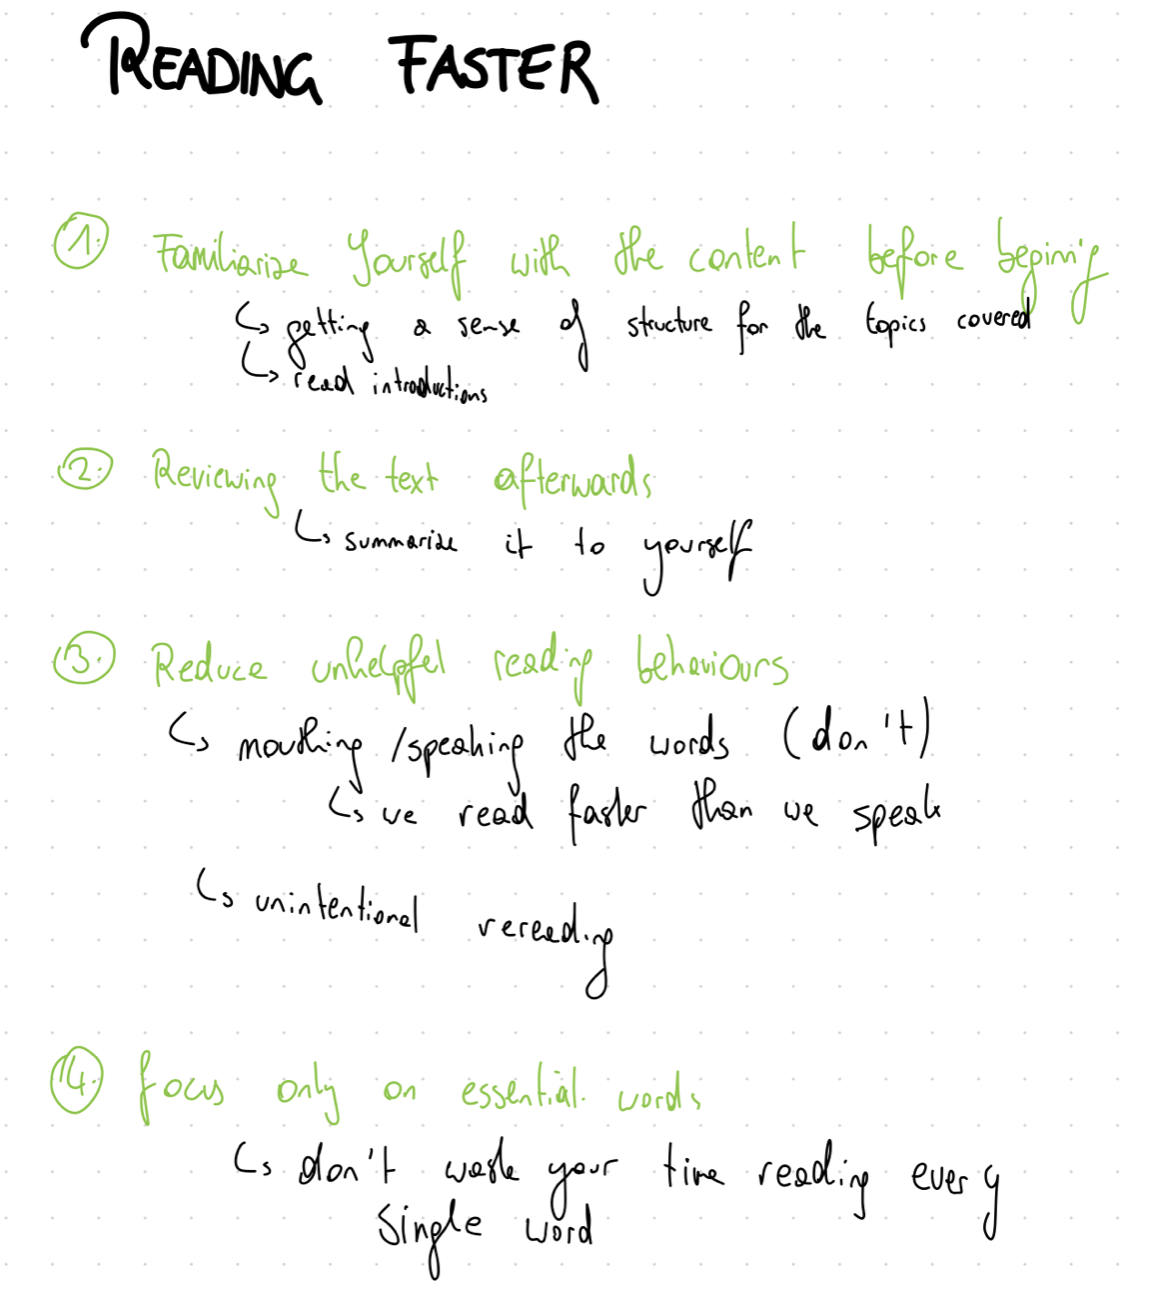 READING FASTER
1. Familiarize Yourself with the content before begining
↳ getting a sense of structure for the topics covered
↳ read introductions
2. Reviewing the text afterwards
↳ summarize it to yourself
3. Reduce unhelpful reading behaviours
↳ mouthing / speaking the words (don't)
↳ we read faster than we speak
↳ unintentional rereading
4. focus only on essential words
↳ don't waste your time reading every
single word